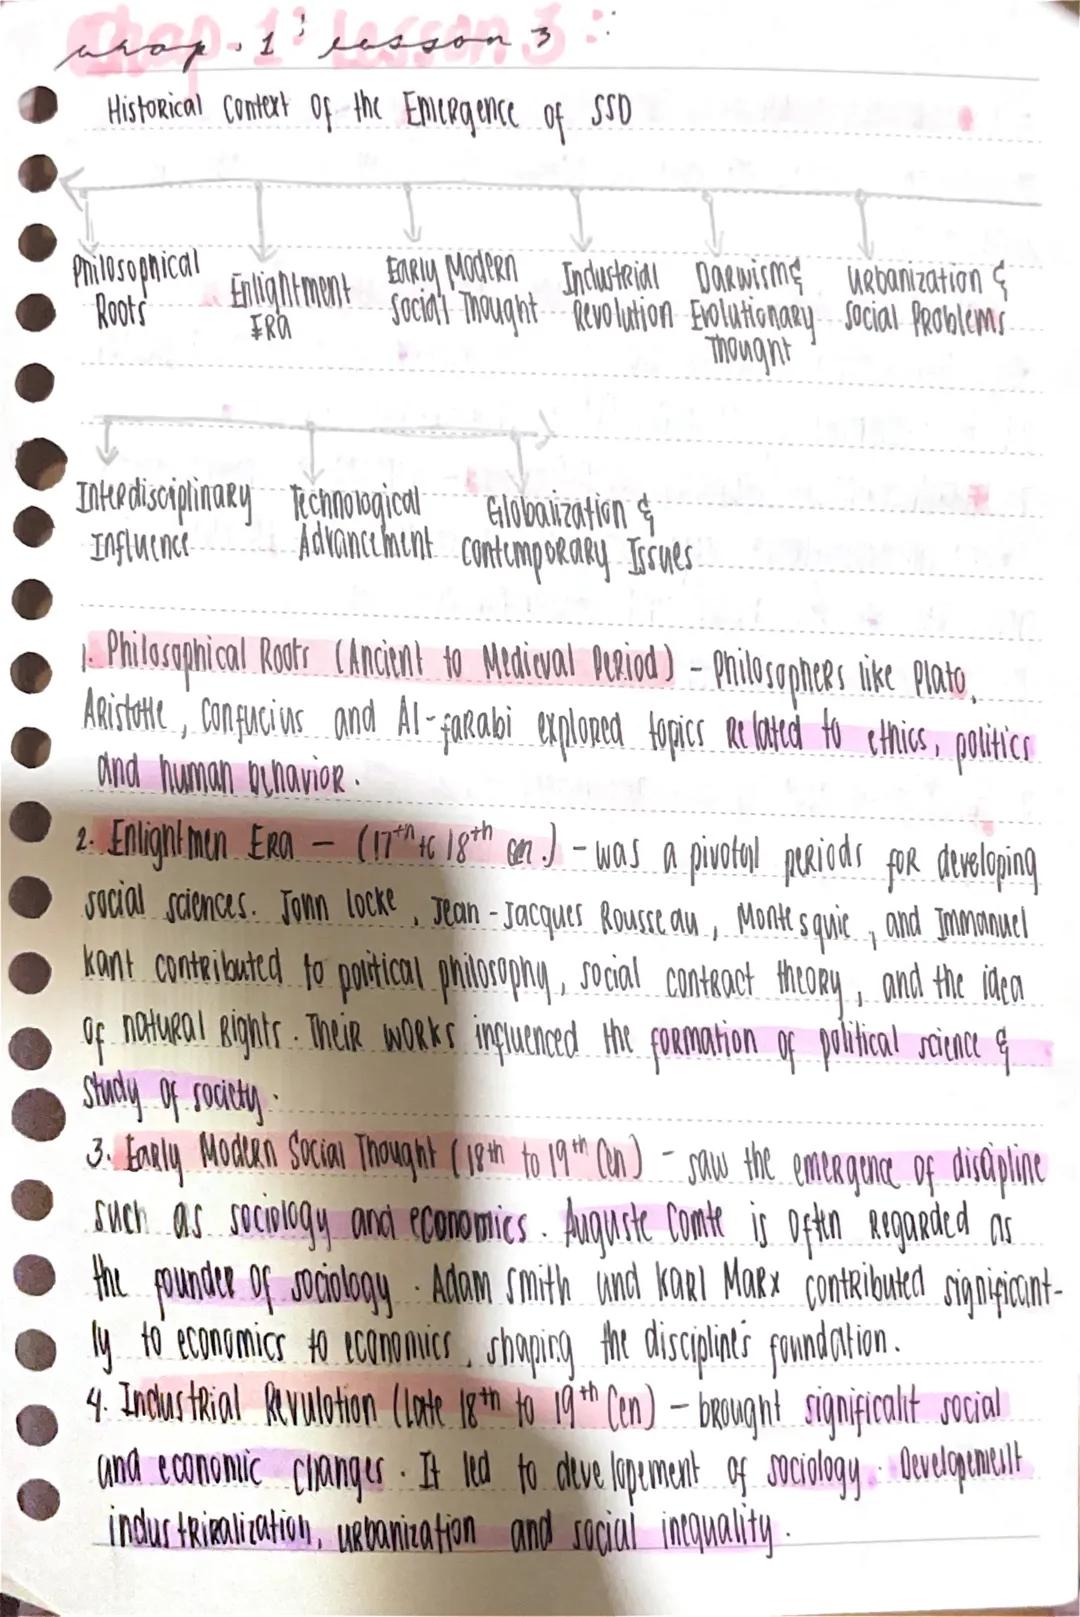 Chap. 1: Lesson 3:
Historical Context of the Emergence of SSD
Philosophical Roots
Enlightment Era
Early Modern Social Thought
Industrial Revolution
Darwism & Evolutionary Thought
Urbanization & Social Problems
Interdisciplinary Influence
Technological Advancement
Globalization & Contemporary Issues
1. Philosophical Roots (Ancient to Medieval Period) - Philosophers like Plato,
Aristotle, Confucius and Al-farabi explored topics related to ethics, politics
and human behavior.
2. Enlightmen Era - (17th to 18th cen.) - was a pivotal periods for developing
social sciences. John locke, Jean-Jacques Rousseau, Montesquie, and Immanuel
kant contributed to political philosophy, social contract theory, and the idea
of natural Rights. Their works influenced the formation of political science &
study of society.
3. Early Modern Social Thought (18th to 19th Cen) - saw the emergence of discipline
such as sociology and economics. Auguste Comte is often Regarded as
the founder of sociology. Adam smith and Karl Marx contributed significant-
ly to economics to economics, shaping the discipline's foundation.
4. Industrial Revulotion (late 18th to 19th Cen) - brought significalit social
and economic changes. It led to developement of sociology. Developemelt
industriralization, urbanization and social inequality.